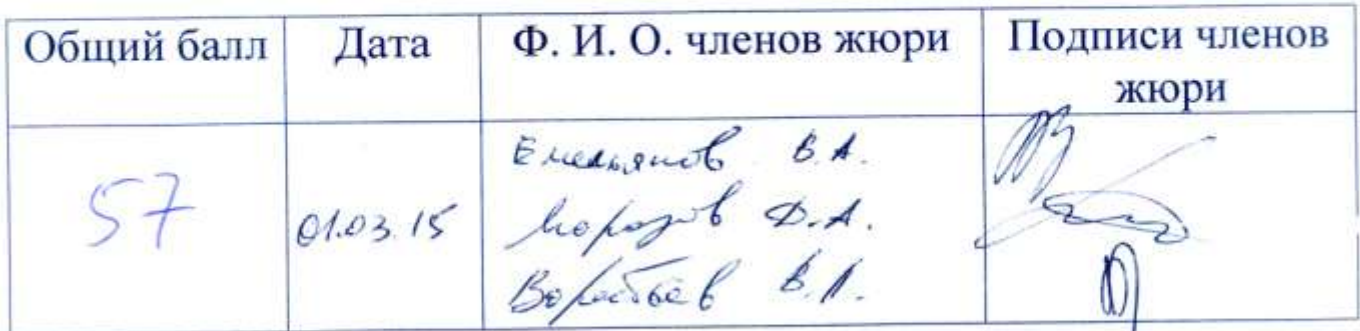 Общий балл Дата Ф. И. О. членов жюри Подписи членов жюри
57 01.03.15 Емельянов В.А.
Морозов Д.А.
Воробьёв В.А.